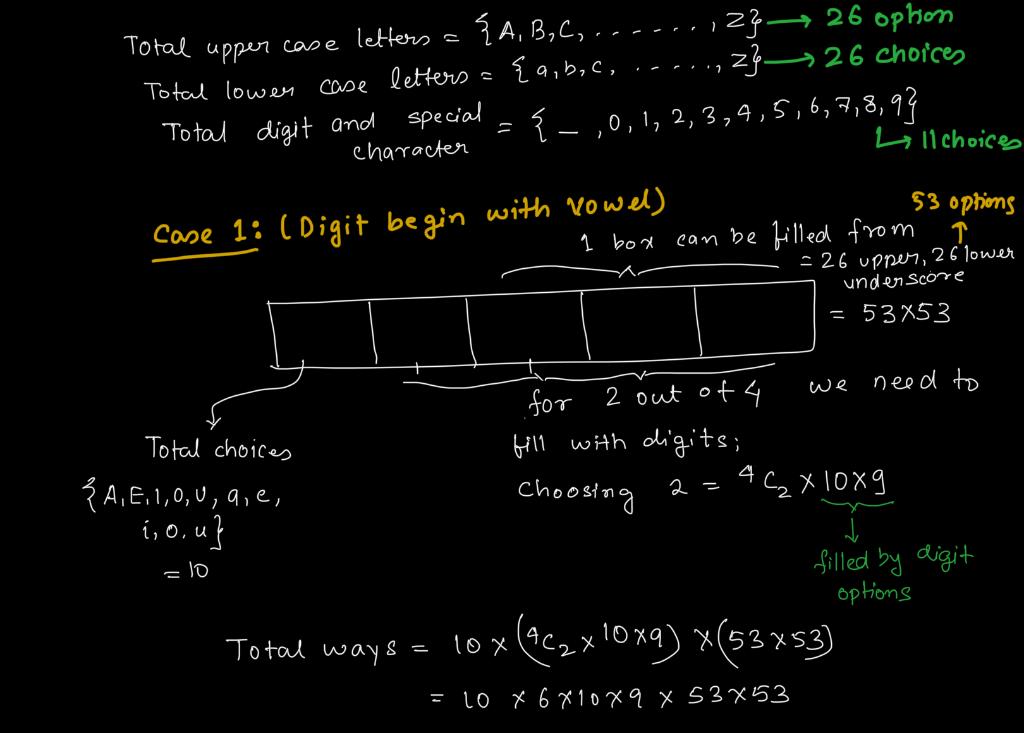 Total upper case letters = {A, B, C, . . . . . . , Z} → 26 option
Total lower case letters = {a, b, c, . . . . . , z} → 26 choices
Total digit and special character = { _ , 0, 1, 2, 3, 4, 5, 6, 7, 8, 9}
↳ 11 choices
Case 1: (Digit begin with vowel)
53 options
↑
1 box can be filled from
= 26 upper, 26 lower
underscore
= 53 x 53
for 2 out of 4 we need to
fill with digits;
Choosing 2 = ⁴C₂ x 10 x 9
filled by digit
options
Total choices
{A, E, I, O, U, a, e,
i, o, u}
= 10
Total ways = 10 x (⁴C₂ x 10 x 9) x (53 x 53)
= 10 x 6 x 10 x 9 x 53 x 53